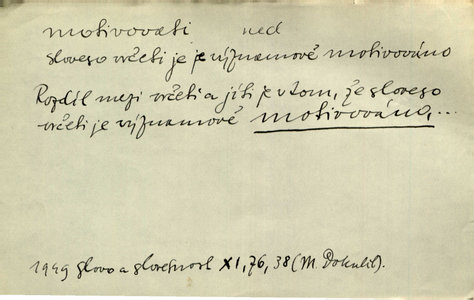 motivovati ned
sloveso vrčeti je významově motivováno
Rozdíl mezi vrčeti a jíti je v tom, že sloveso
vrčeti je významově motivováno, ...
1949 Slovo a slovesnost XI, 76, 38 (M. Dokulil).